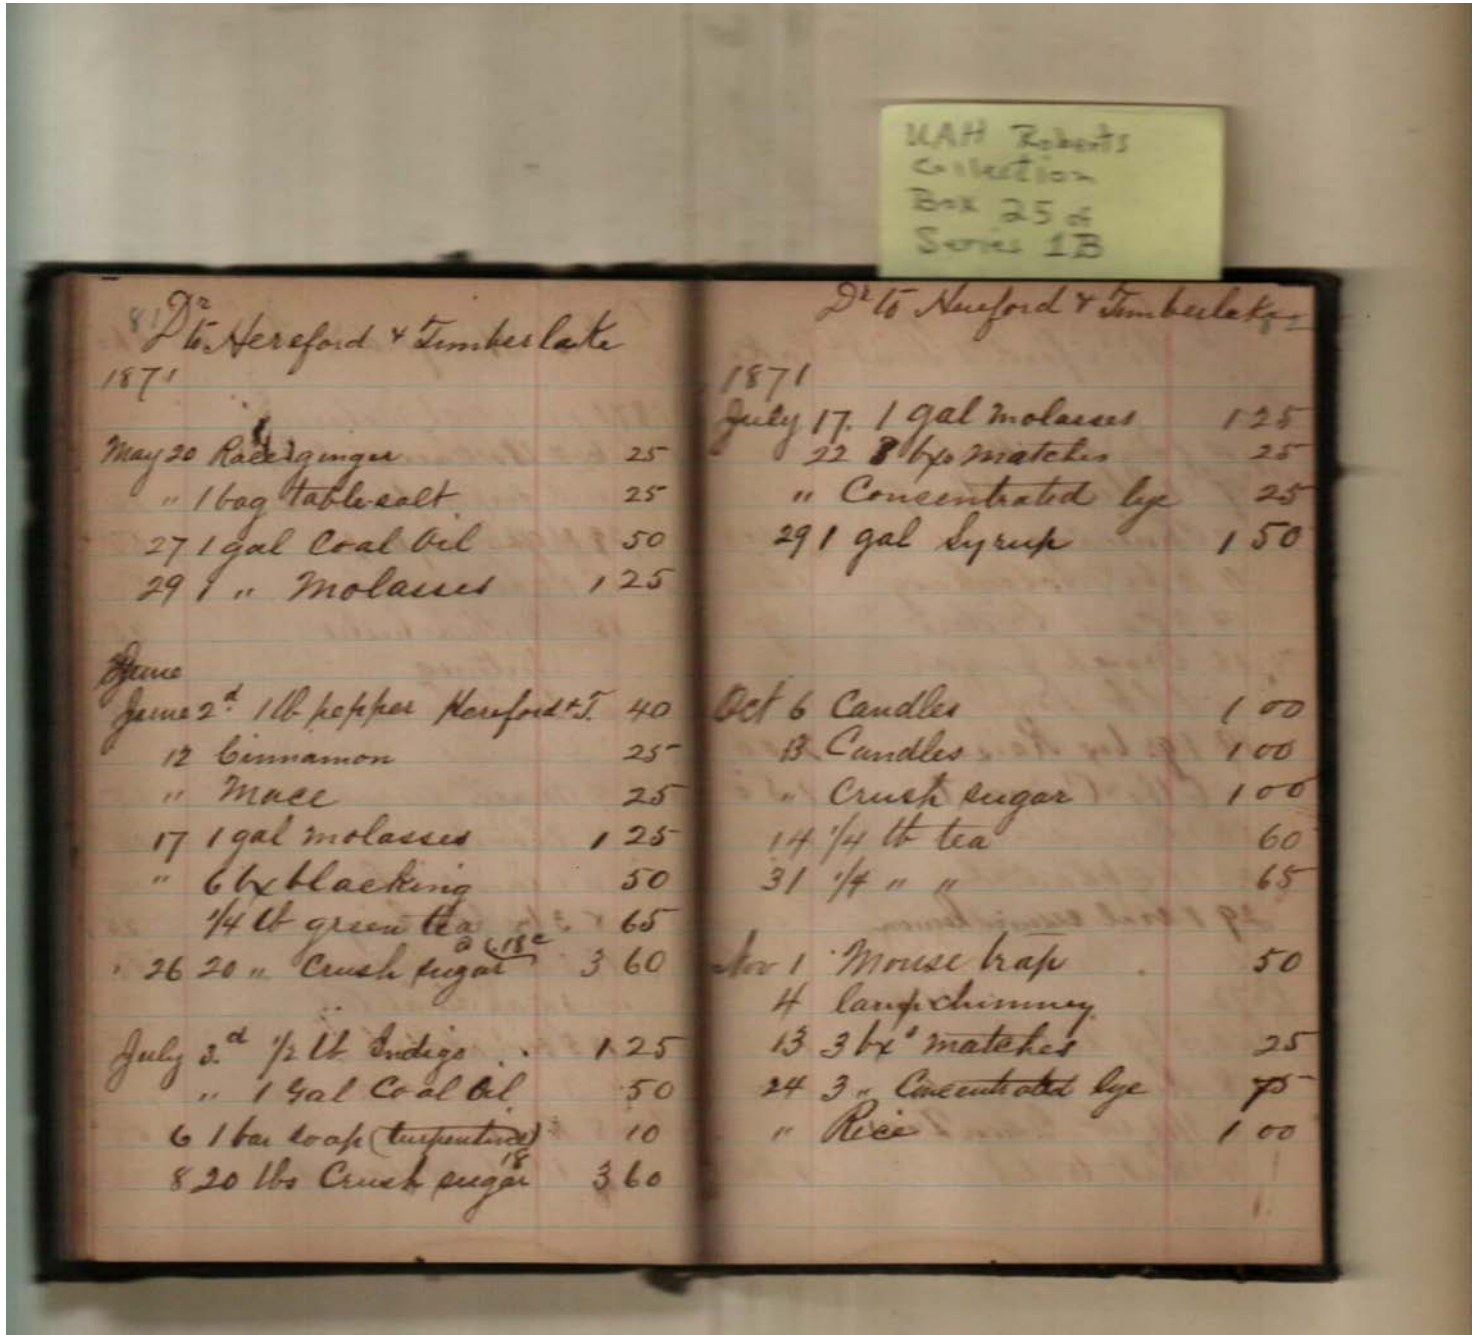 UAH Roberts
Collection
Box 25 of
Series 1B
81
Dr to Hereford & Timberlake
1871
May 20 Race ginger 25
" 1 bag table salt 25
27 1 gal Coal Oil 50
29 1 " Molasses 1 25
June
June 2d 1 lb pepper Hereford & T. 40
12 Cinnamon 25
" Mace 25
17 1 gal molasses 1 25
" 6 bx blacking 50
1/4 lb green tea 65
26 20 " Crush sugar @ 18c 3 60
July 3d 1/2 lb Indigo 1 25
" 1 Gal Coal Oil 50
6 1 bar soap (turpentine) 10
8 20 lbs Crush sugar 18 3 60
Dr to Hereford & Timberlake
82
1871
July 17. 1 gal molasses 1 25
22 3 bxs matches 25
" Concentrated lye 25
29 1 gal Syrup 1 50
Oct 6 Candles 1 00
13 Candles 1 00
" Crush sugar 1 00
14 1/4 lb tea 60
31 1/4 " " 65
Nov 1 Mouse trap 50
4 lamp chimney
13 3 bxs matches 25
24 3 " Concentrated lye 75
" Rice 1 00